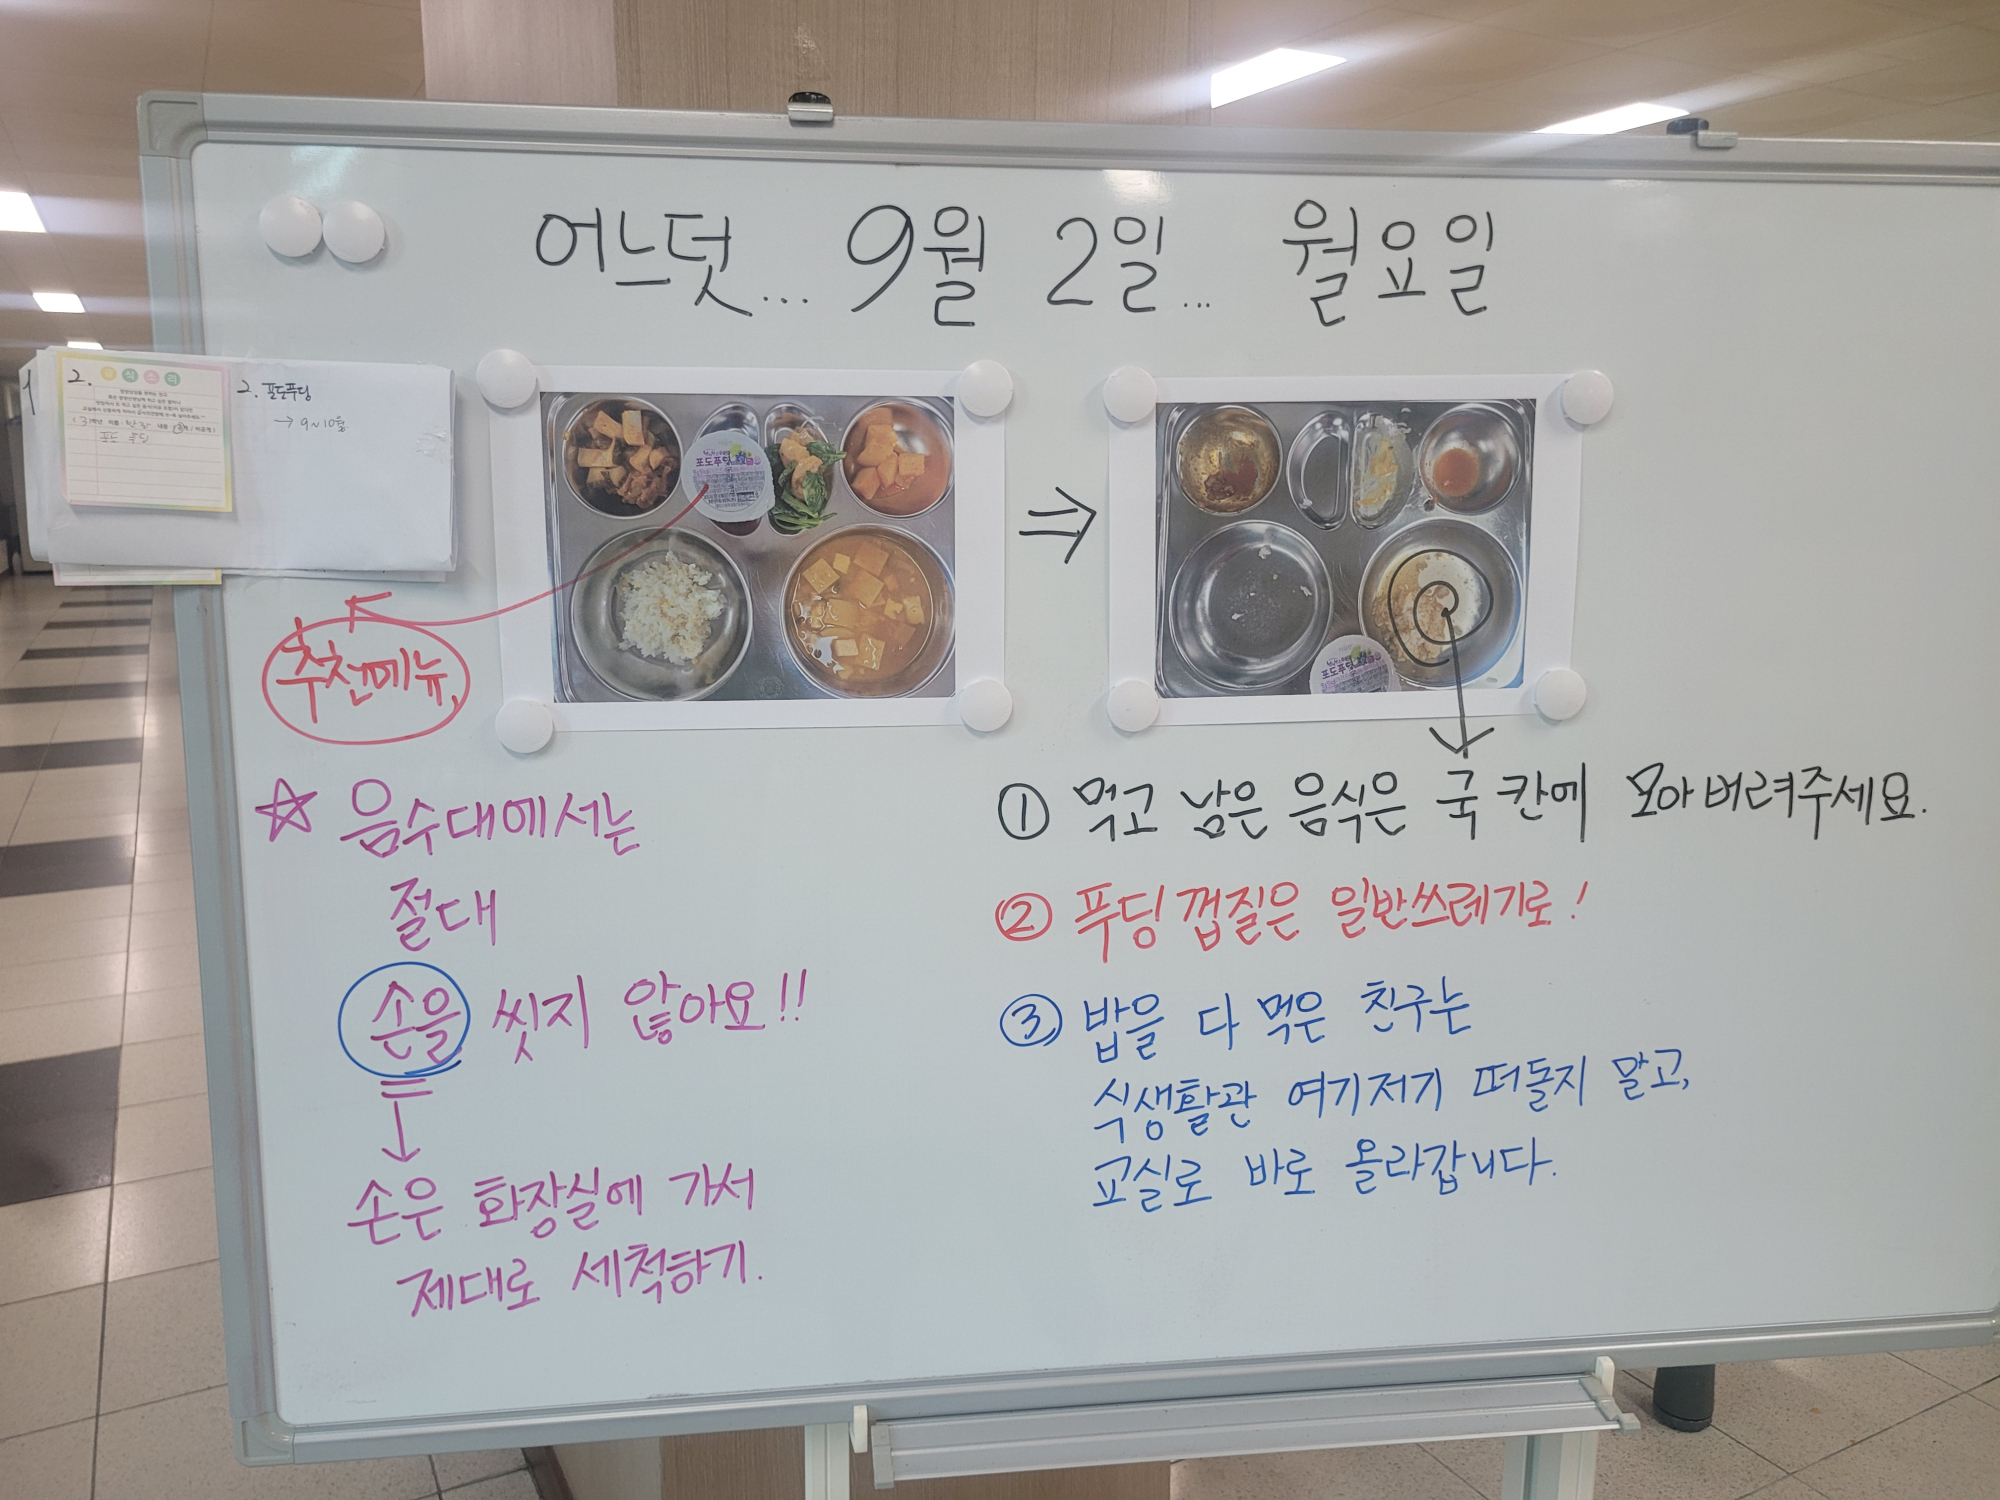 어느덧... 9월 2일... 월요일
2.
급식소리
포도 푸딩
2. 포도푸딩
→ 9~10월
포도푸딩
포도푸딩
추천메뉴
☆ 음수대에서는
절대
손을 씻지 않아요!!
손은 화장실에 가서
제대로 세척하기.
① 먹고 남은 음식은 국 칸에 모아버려주세요.
② 푸딩 껍질은 일반쓰레기로!
③ 밥을 다 먹은 친구는
식생활관 여기저기 떠돌지 말고,
교실로 바로 올라갑니다.